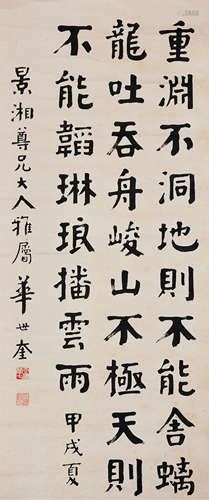 重淵不洞地則不能含螭
龍吐吞舟峻山不極天則
不能韜琳琅播雲雨 甲戌夏
景湘尊兄大人雅屬 華世奎